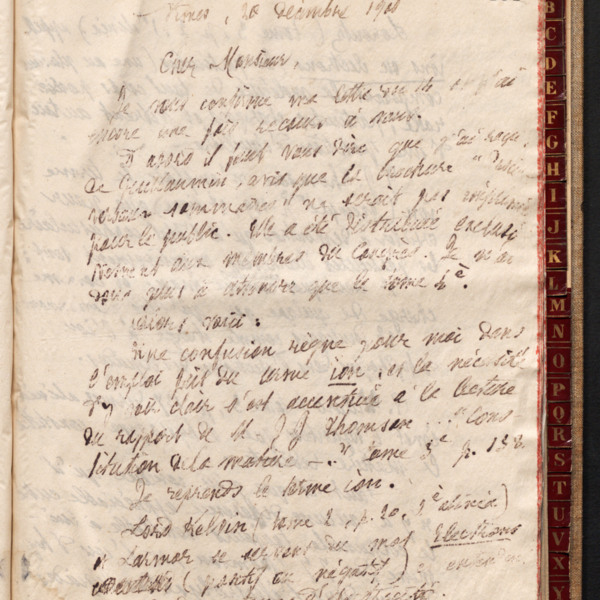 Nimes, 20 décembre 1901
Cher Monsieur,
Je vous confirme ma lettre du 14 et j'ai
encore une fois recours à vous.
D'abord il faut vous dire que j'ai reçu,
de Guillaumin, avis que la brochure "
sommaires" ne serait pas
pour le public. Elle a été distribuée exclusi
vement aux membres du Congrès. Je n'ai
donc plus à attendre que le tome 4e.
Alors voici :
Une confusion règne pour moi dans
l'emploi fait du terme ion, et la nécessité
d'y voir clair s'est accentuée à la lecture
du rapport de M J.J. Thomson ... "Cons
titution de la matière —." tome 3e p. 138.
Je reprends le terme ion.
Lord Kelvin (tome 2, p. 20, 3e alinéa)
et Larmor se servent du mot Electrions
(positif ou négatif) entendre
B
C
D
E
F
G
H
I
J
K
L
M
N
O
P
Q
R
S
T
U
V
X
Y